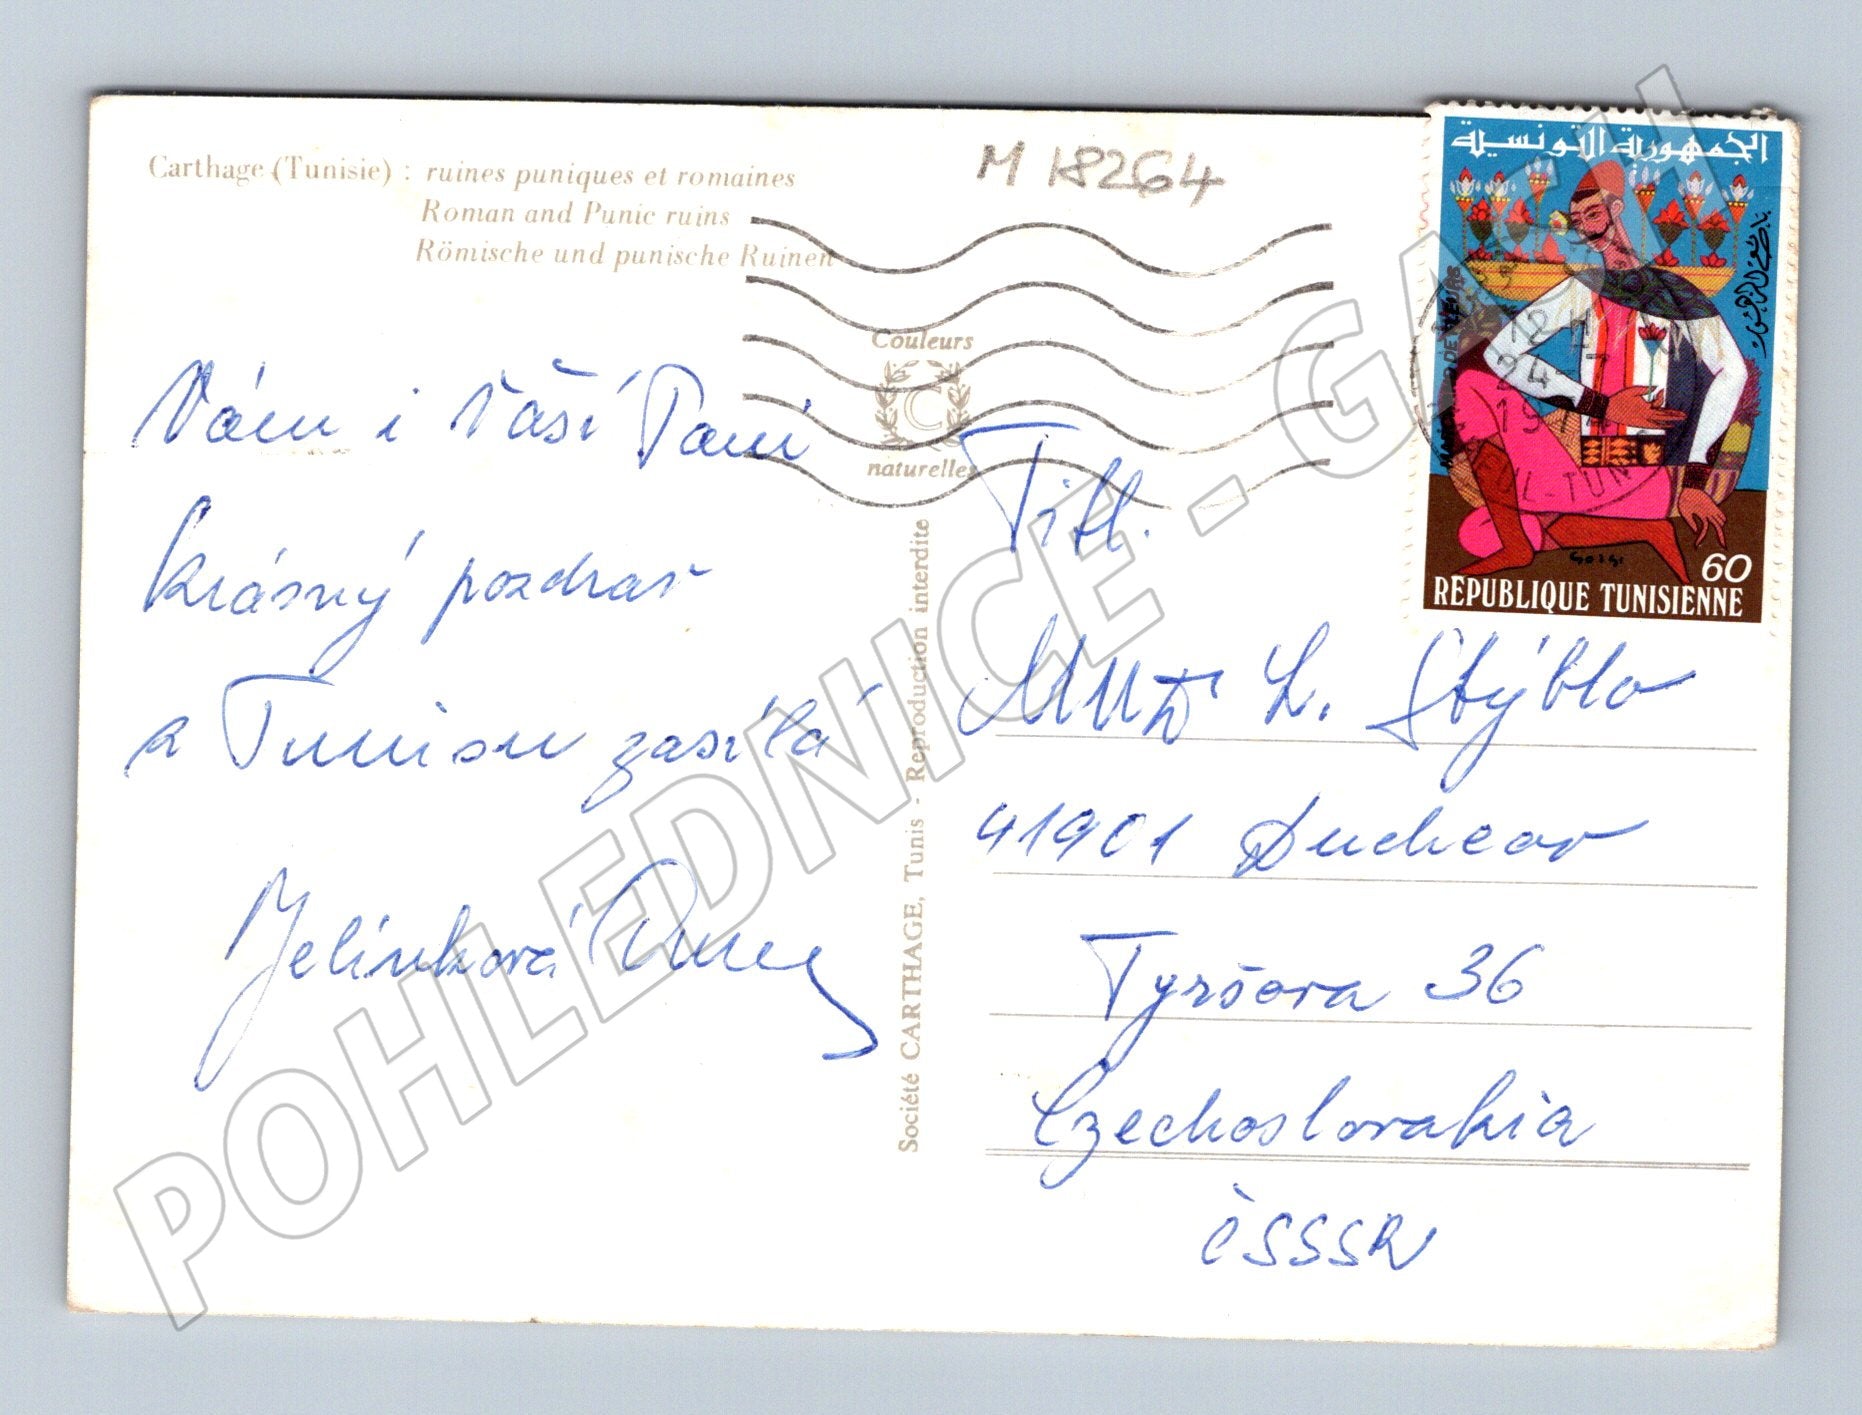 Carthage (Tunisie) : ruines puniques et romaines
Roman and Punic ruins
Römische und punische Ruinen
M 18264
Couleurs
C
naturelles
Vám i Vaší Paní
krásný pozdrav
z Tunisu zasílá
Jelínková
Société CARTHAGE, Tunis - Reproduction interdite
الجمهورية التونسية
60
RÉPUBLIQUE TUNISIENNE
Titl.
MUDr L. Stýblo
41901 Duchcov
Tyršova 36
Czechoslovakia
ČSSSR
POHLEDNICE - GASH